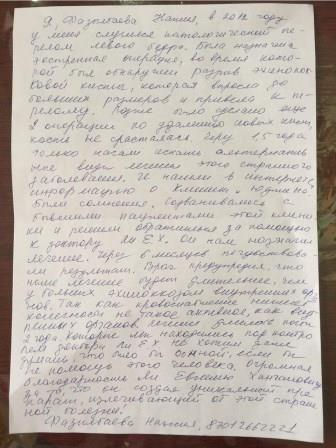 Я, Фазылбаева Наиля, в 2012 году
у меня случился патологический пе-
релом левого бедра. Была назначена
экстренная операция, во время кото-
рой был обнаружен разрыв эхинокок-
ковой кисты, которая выросла до
больших размеров и привела к пе-
релому. Позже было сделано еще
2 операции по удалению новых кист,
кость не срасталась. Через 1,5 года
только начали искать альтернатив-
ные виды лечения этого страшного
заболевания. И нашли в интернете
информацию о клинике.
Были сомнения. Созванивались с
бывшими пациентами этой клини-
ки и решили обратиться за помощью
к доктору Ли Е.Х. Он нам назначил
лечение. Через 6 месяцев почувствова-
ли результат. Врач предупредил, что
наше лечение будет длительнее, чем
у больных с эхинококкозом внутренних орга-
нов. Так как кровоснабжение нижней
конечности не такое активное, как внут-
ренних органов, лечение длилось почти
2 года, которые мы находились под контро-
лем доктора Ли Е.Х. Не хотим даже
думать, что было бы со мной, если бы
не помощь этого человека. Огромная
благодарность Ли Евгению
за то, что он создал уникальный пре-
парат, излечивающий от этой страш-
ной болезни.
Фазылбаева Наиля, 87012662221